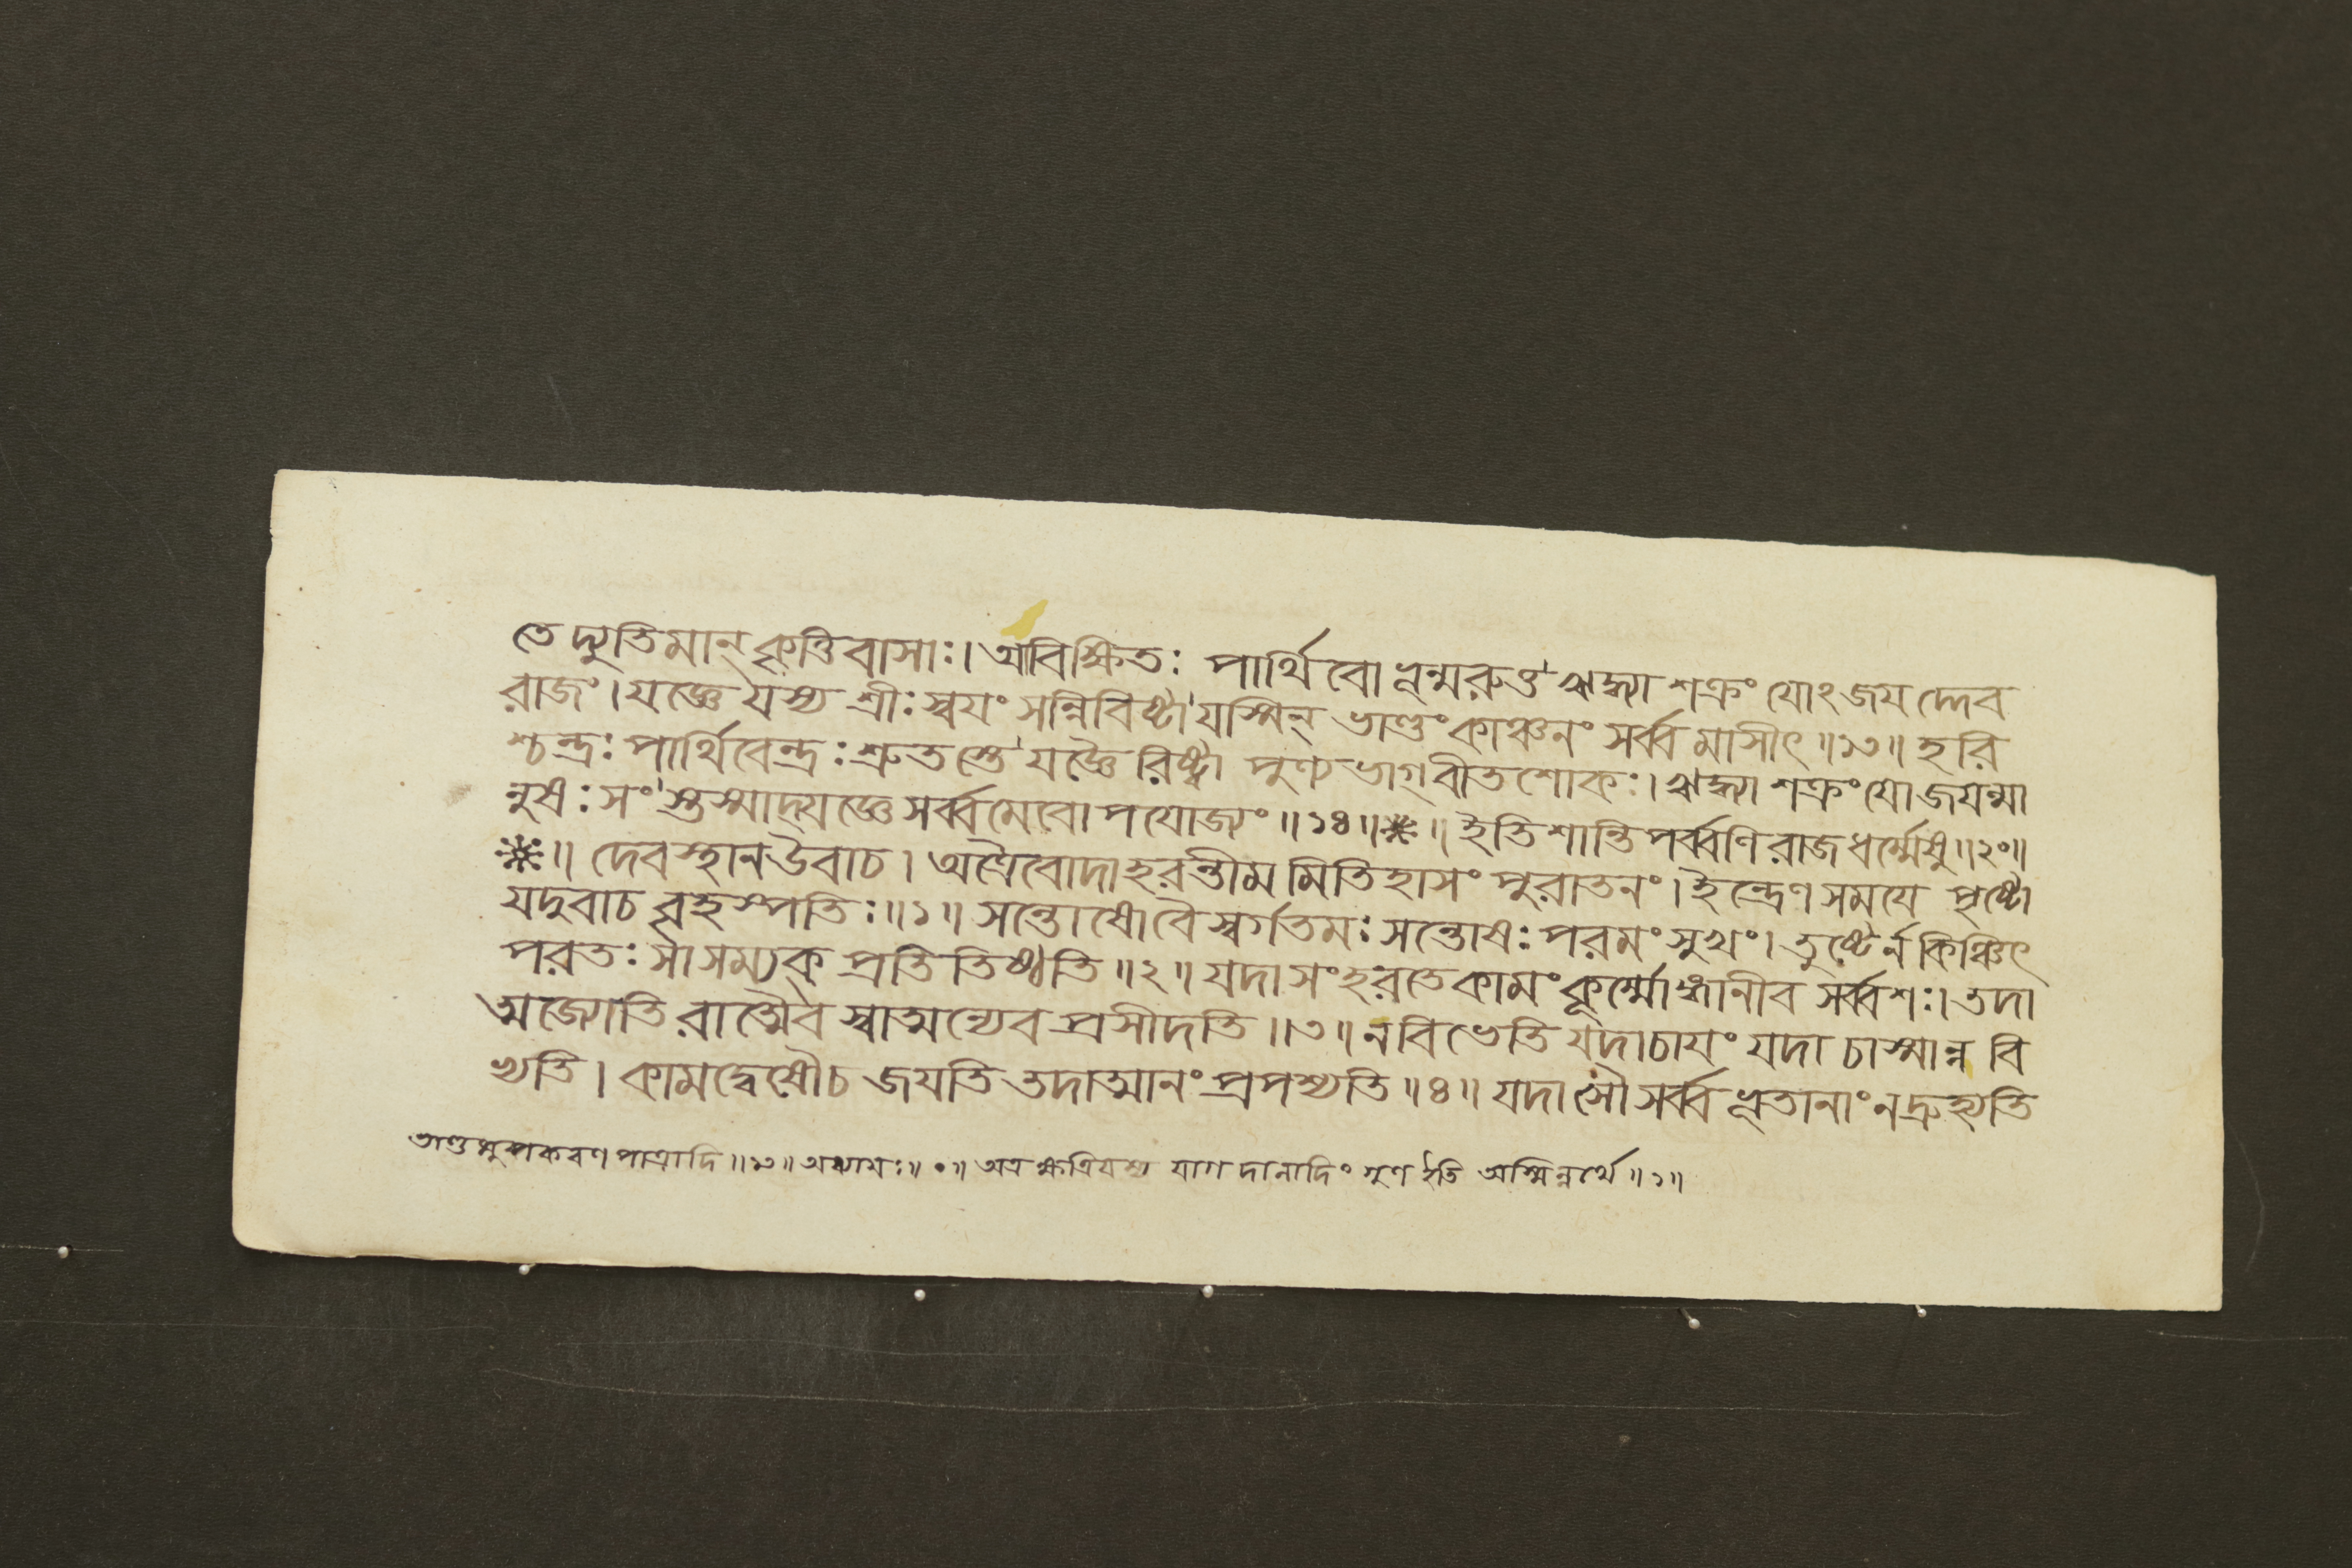 তে দ্যুতিমান্ কৃত্তিবাসাঃ। আবিক্ষিতঃ পার্থিবো ন্নন্মরুত্ত ঋদ্ধ্যা শক্রং যোঽজযদ্দেব
রাজং। যজ্ঞে যস্য শ্রীঃ স্বযং সন্নিবিষ্টা যস্মিন্ ভাণ্ডং কাঞ্চনং সর্ব্বমাসীৎ॥১৩॥ হরি
শ্চন্দ্রঃ পার্থিবেন্দ্রঃ শ্রুতস্তে যজ্ঞৈরিষ্ট্বা পুণ্যভাগ্বীতশোকঃ। ঋদ্ধ্যা শক্রং যোজযন্মা
নুষঃ সংস্তস্মাদ্যজ্ঞে সর্ব্বমেবোপযোজ্যং॥১৪॥❋॥ ইতি শান্তিপর্ব্বণি রাজধর্ম্মেষু॥২০॥
❋॥ দেবস্থান উবাচ। অত্রৈবোদাহরন্তীমমিতিহাসং পুরাতনং। ইন্দ্রেণ সমযে পৃষ্টো
যদুবাচ বৃহস্পতিঃ॥১॥ সন্তোষো বৈ স্বর্গতমঃ সন্তোষঃ পরমং সুখং। তুষ্টের্ন কিঞ্চিৎ
পরতঃ সা সম্যক্ প্রতিতিষ্ঠতি॥২॥ যদা সংহরতে কামং কূর্ম্মোঙ্গানীব সর্ব্বশঃ। তদা
ত্মজ্যোতিরাত্মৈব স্বাত্মন্যেব প্রসীদতি॥৩॥ ন বিভেতি যদা চাযং যদা চাস্মান্ন বি
ভ্যতি। কামদ্বেষৌ চ জযতি তদাত্মানং প্রপশ্যতি॥৪॥ যদাসৌ সর্ব্বভূতানাং ন দ্রুহ্যতি
ভাণ্ডমুপকরণপাত্রাদি॥১৩॥ অধ্যাযঃ॥০॥ অত্র ক্ষত্রিযস্য যাগদানাদিং গুণ ইতি অস্মিন্নর্থে॥১॥